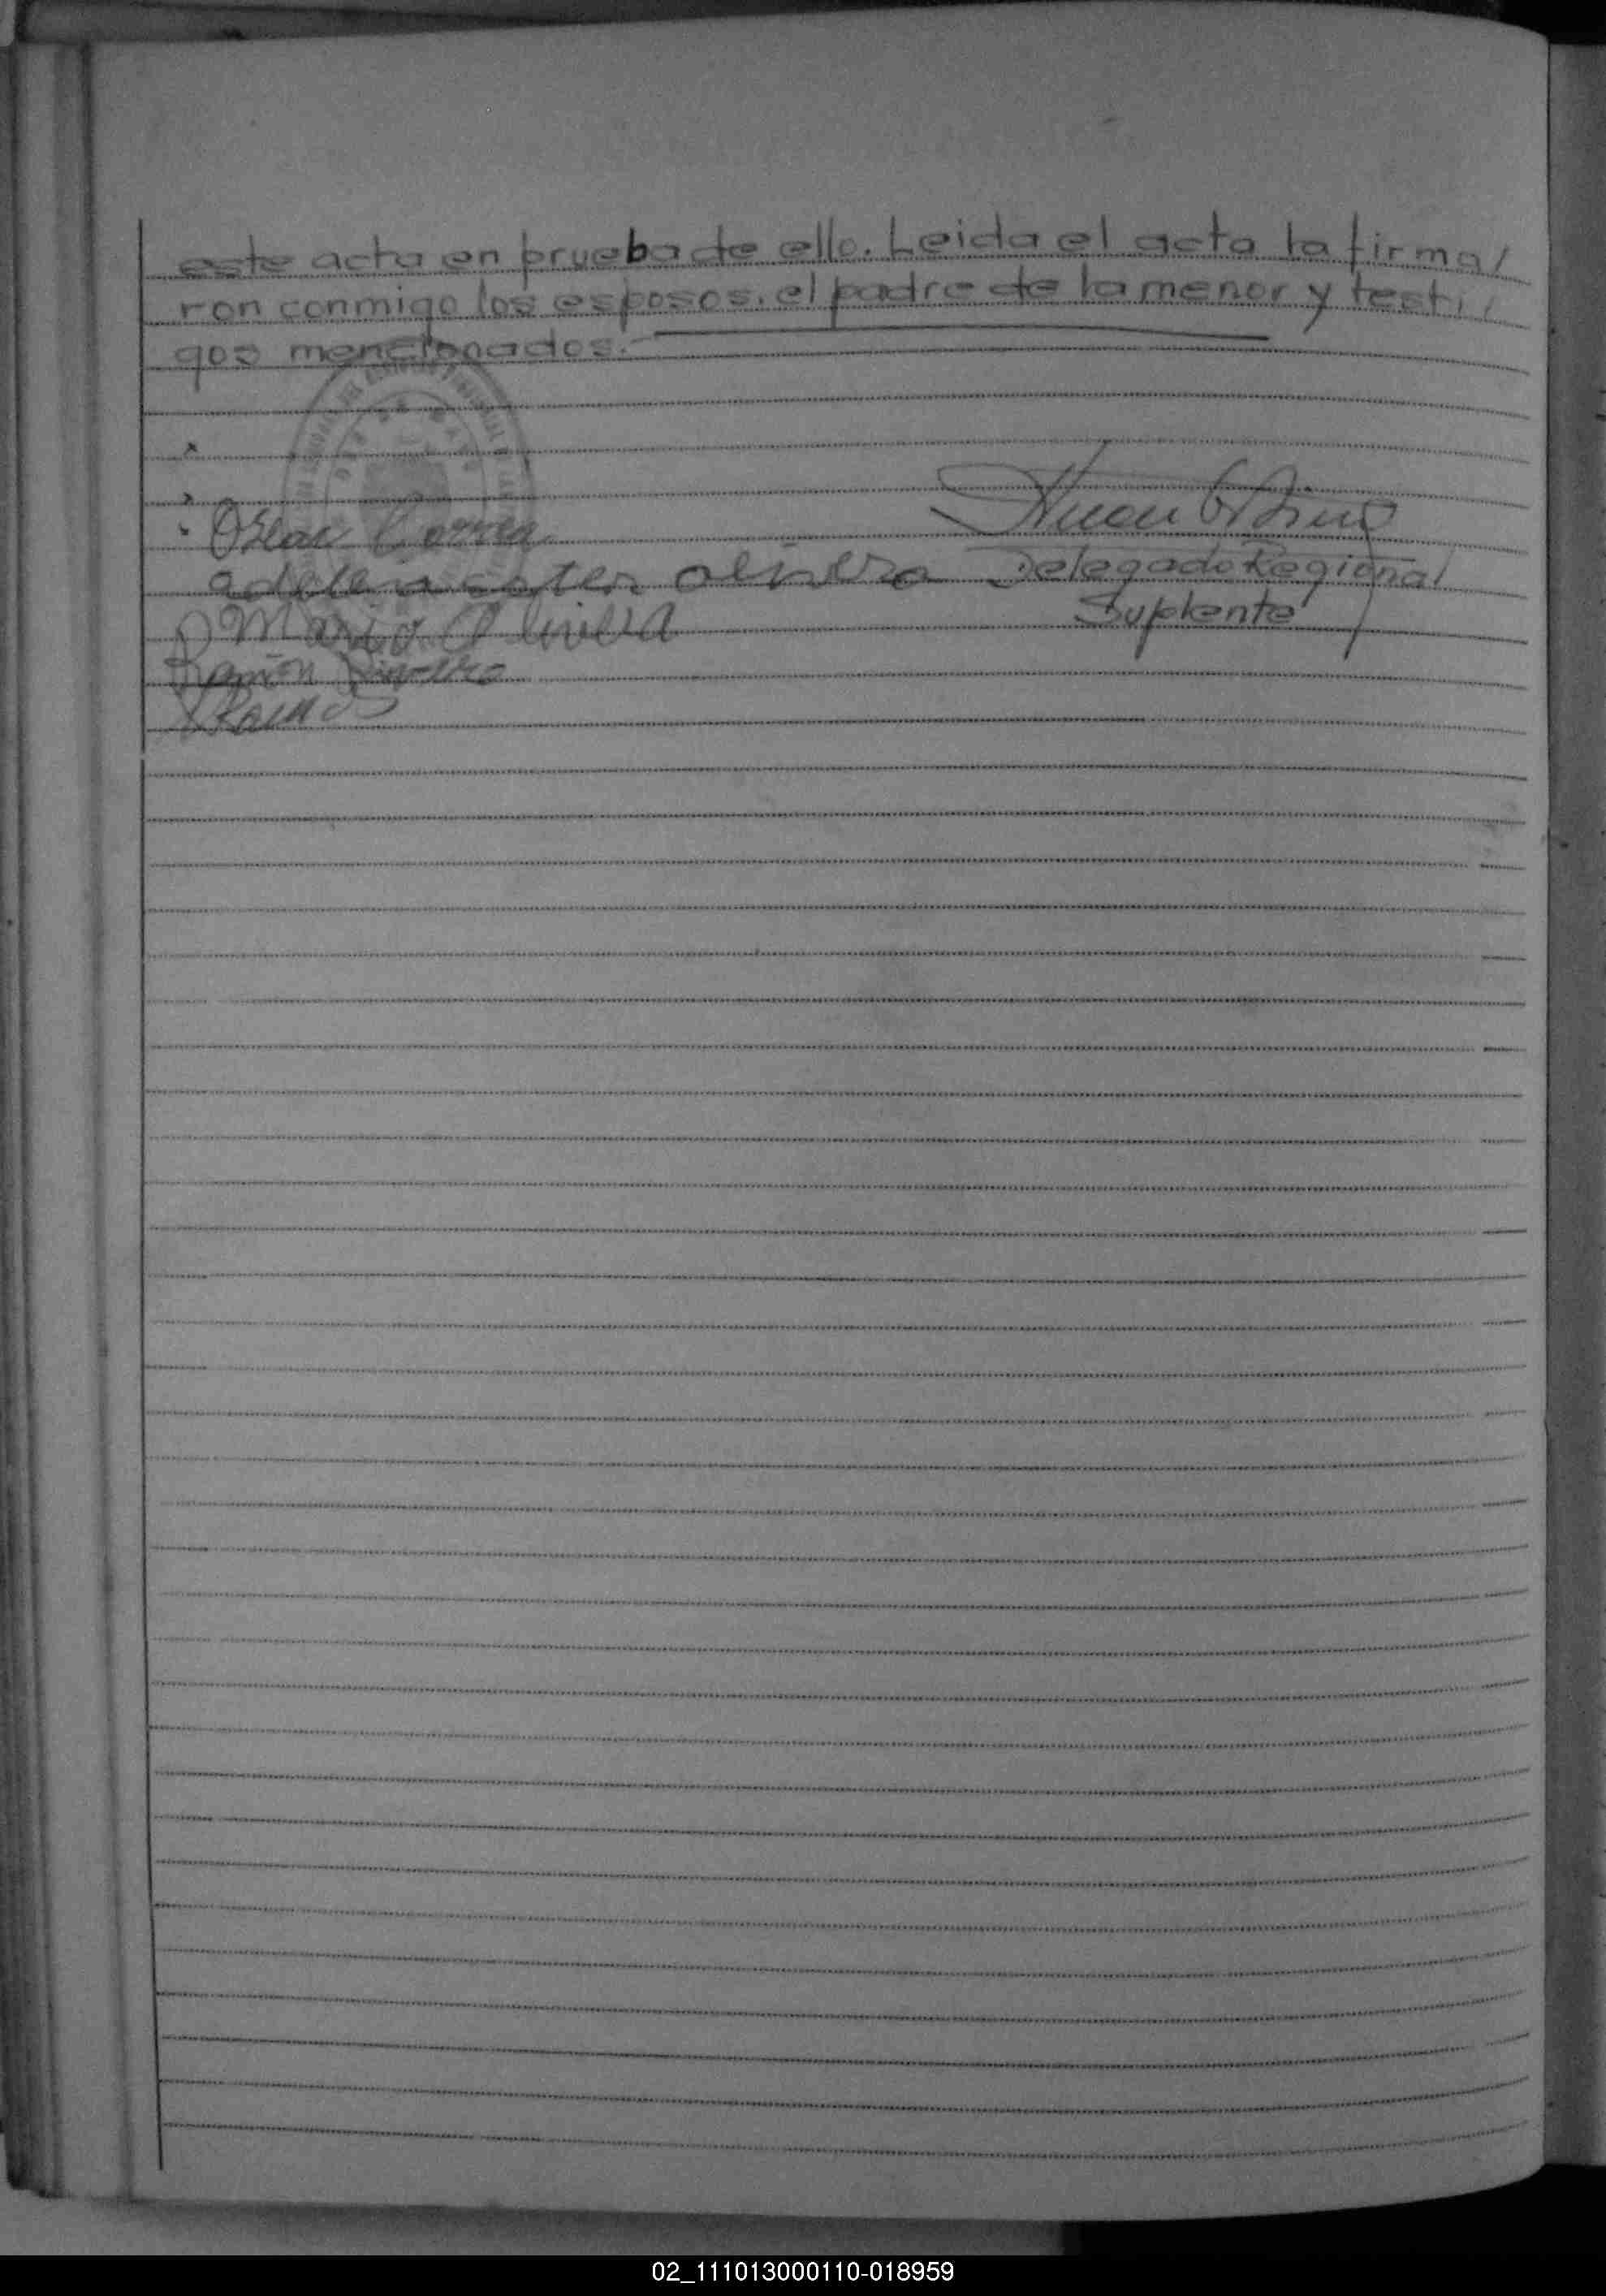 este acta en prueba de ello. Leida el acta la firma/
ron conmigo los esposos, el padre de la menor y testi/
gos mencionados.-
Oscar Correa
adelia ester olivera Delegado Regional
Mario Olivera Suplente
Ramón
02_111013000110-018959